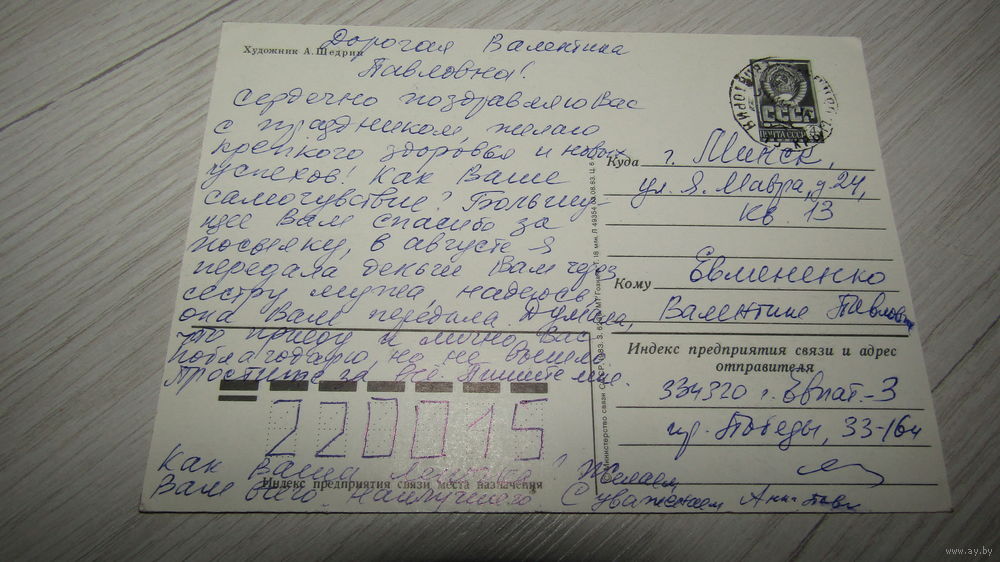 Художник А. Щедрин
Дорогая Валентина
Павловна!
Сердечно поздравляю Вас
с праздником, желаю
крепкого здоровья и новых
успехов! Как Ваше
самочувствие? Большу-
щее Вам спасибо за
посылку, в августе я
передала деньги Вам через
сестру мужа, надеюсь
она Вам передала. Думала,
что приеду и лично Вас
поблагодарю, но не вышло.
Простите за всё. Пишите мне.
220015
Индекс предприятия связи места назначения
Как Ваша
Вам всего наилучшего
Желаем
С уважением Анна
СССР
ПОЧТА СССР
Куда г. Минск,
ул. Я. Мавра, д 24,
кв. 13
Кому Евмененко
Валентине Павловне
Индекс предприятия связи и адрес
отправителя
334320 г. Евпат.-3
пр. Победы, 33-164
www.ay.by